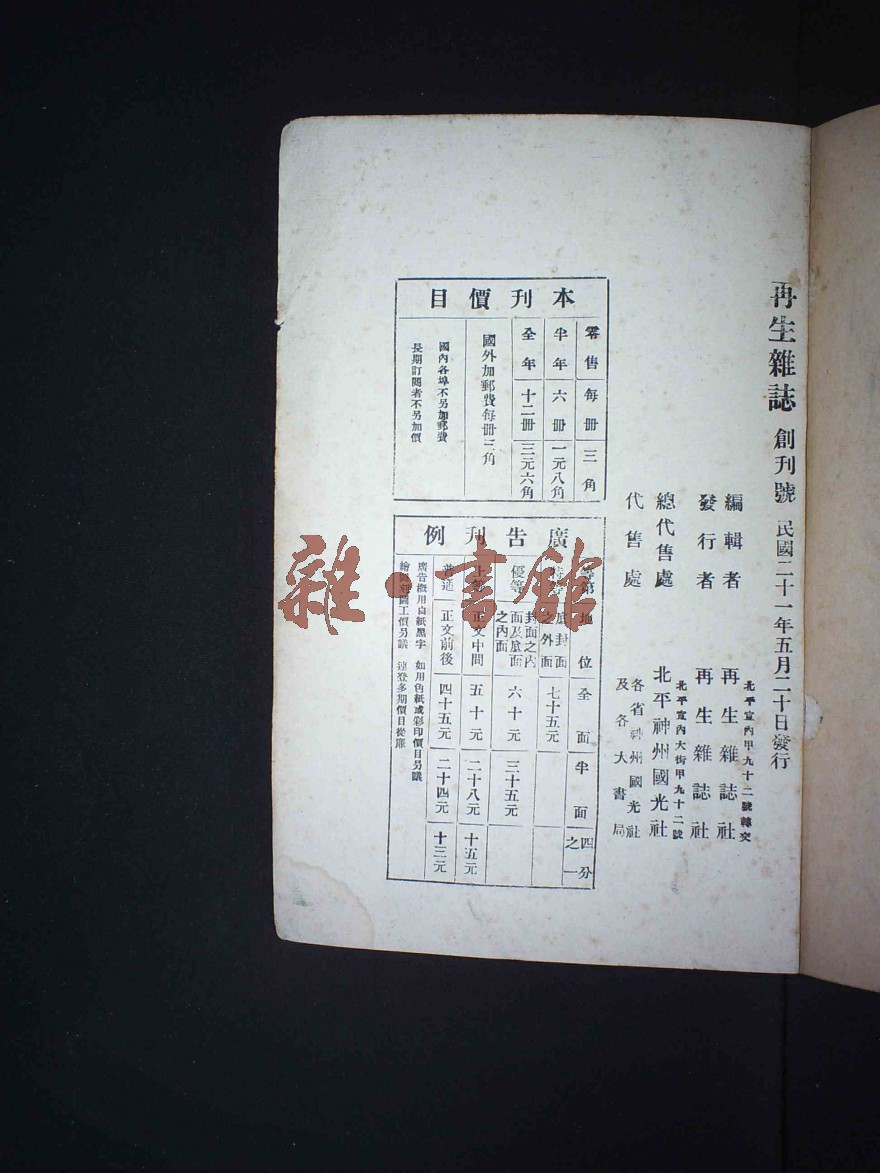 再生雜誌 創刊號 民國二十一年五月二十日發行
編輯者 再生雜誌社
北平宣內甲九十二號轉交
發行者 再生雜誌社
北平宣內大街甲九十二號
總代售處 北平神州國光社
代售處 各省神州國光社
及各大書局
本刊價目
零售 每冊 三角
半年 六冊 一元八角
全年 十二冊 三元六角
國外加郵費每冊三角
國內各埠不另加郵費
長期訂閱者不另加價
廣告刊例
等第 地位 全面 半面 四分之一
特等 底封面之外面 七十五元
優等 封面之內面及底面之內面 六十元 三十五元
上等 正文中間 五十元 二十八元 十五元
普通 正文前後 四十五元 二十四元 十三元
廣告概用白紙黑字 如用色紙或彩印價目另議
繪圖刻圖工價另議 連登多期價目從廉
雜·書館